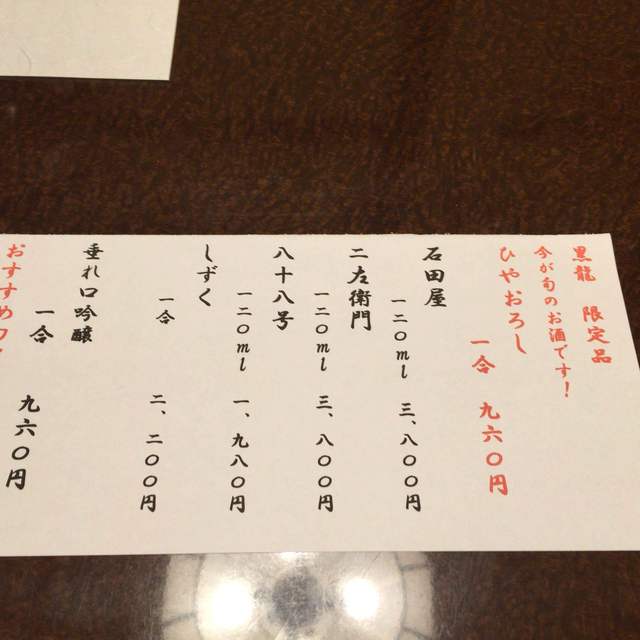 黒龍 限定品
今が旬のお酒です！
ひやおろし
一合 九六〇円
石田屋
一二〇ml 三、八〇〇円
二左衛門
一二〇ml 三、八〇〇円
八十八号
一二〇ml 一、九八〇円
しずく
一合 二、二〇〇円
垂れ口吟醸
一合 九六〇円
おすすめ